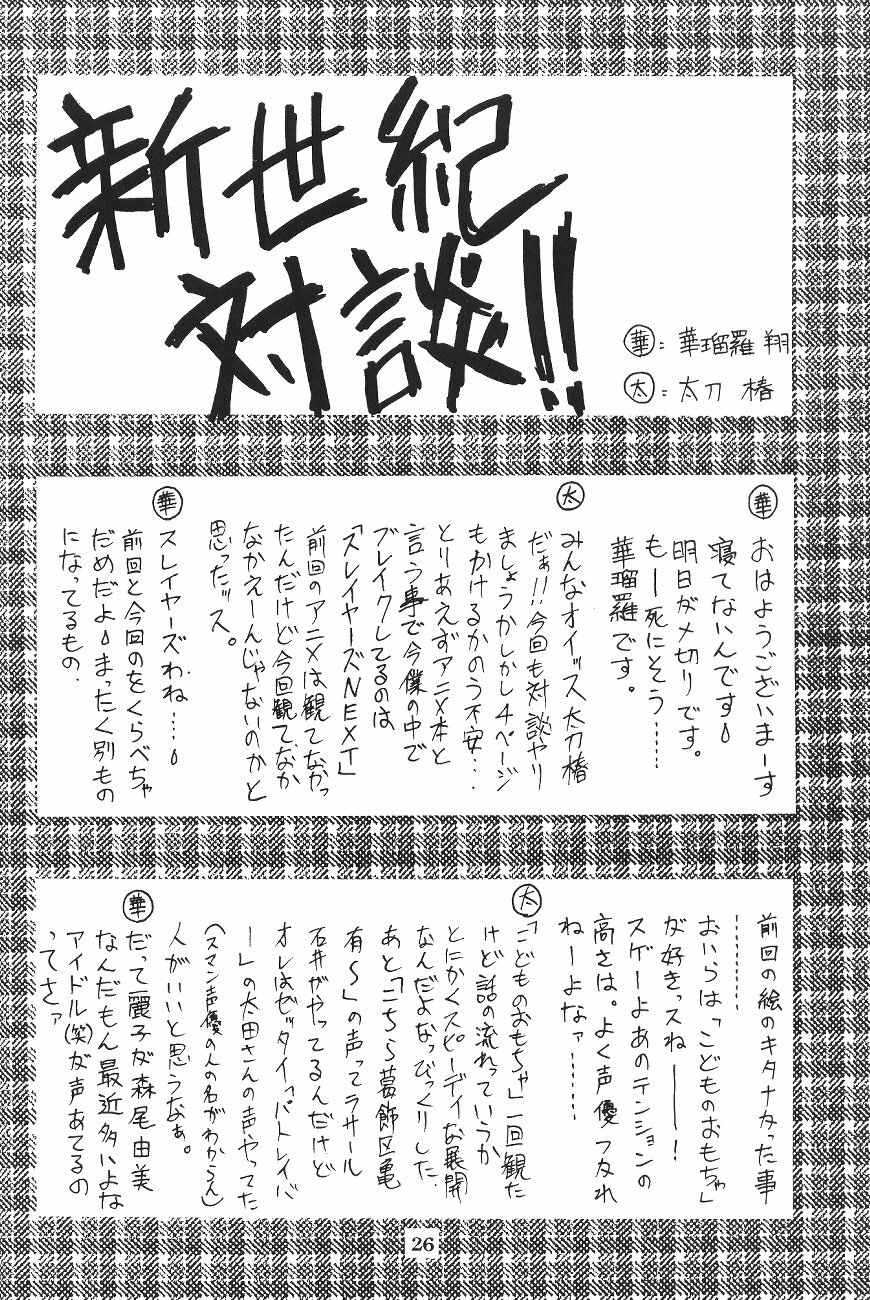 新世紀
対談!!
華：華瑠羅 翔
太：太刀 椿
華
おはようございまーす
寝てないんです
明日〆切りです。
もー死にそう……
華瑠羅です。
太
みんなオイッス太刀椿
だぁ!!今回も対談ヤリ
ましょうかしかし4ページ
もかけるかのう不安…
とりあえずアニメ本と
言う事で今僕の中で
ブレイクしてるのは
「スレイヤーズNEXT」
前回のアニメは観てなかっ
たんだけど今回観てなか
なかえーんじゃないのかと
思ったッス。
華
スレイヤーズわね…
前回と今回のをくらべちゃ
だめだよまったく別もの
になってるもの.
前回の絵のキタナかった事
………
おいらは「こどものおもちゃ」
が好きっスねー！
スゲーよあのテンションの
高さは。よく声優つかれ
ねーよなァ……
太
「こどものおもちゃ」一回観た
けど話の流れっていうか
とにかくスピーディな展開
なんだよなっびっくりした。
あと「こちら葛飾区亀
有〜」の声ってラサール
石井がやってるんだけど
オレはゼッタイ「パトレイバ
ー」の太田さんの声やってた
(スマン声優の人の名がわからん)
人がいいと思うなぁ。
華
だって麗子が森尾由美
なんだもん最近多いよな
アイドル(笑)が声あてるの
ってさァ
26